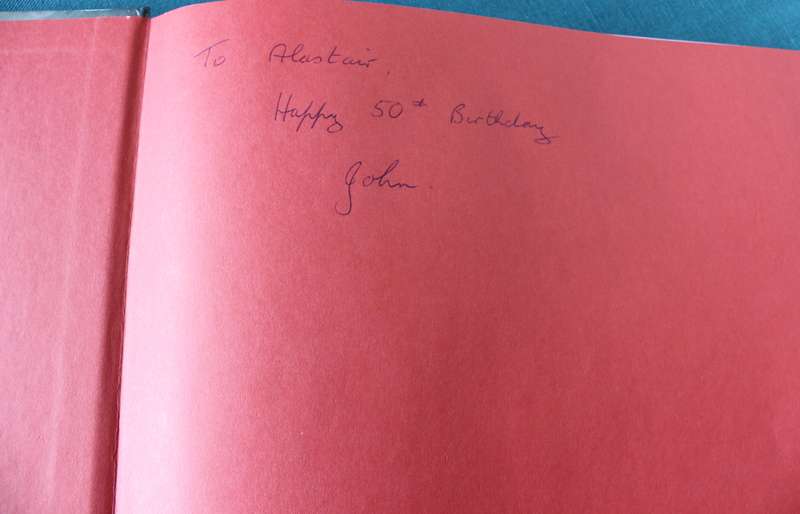 To Alastair,
Happy 50th Birthday
John.